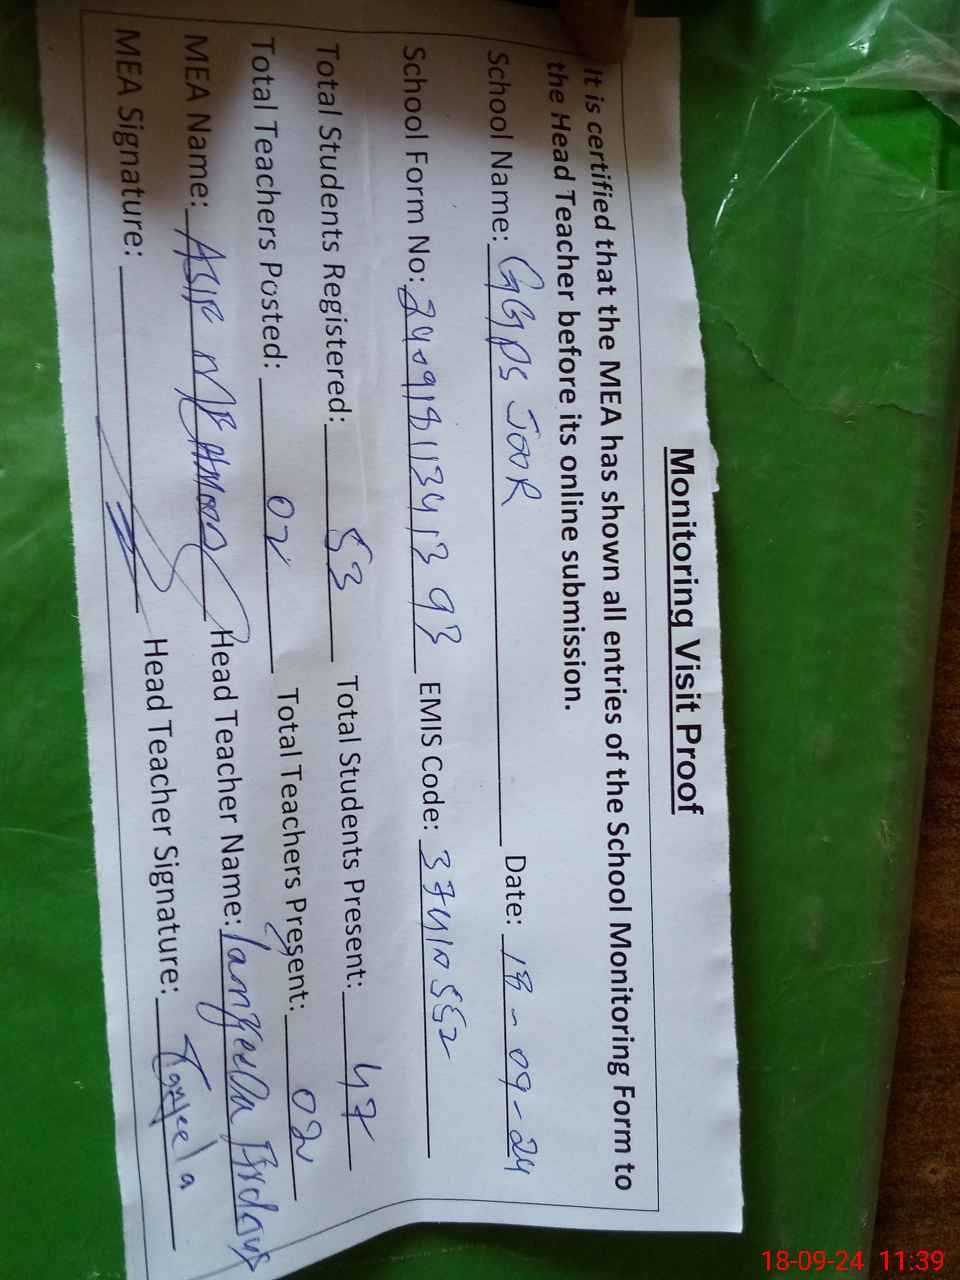 Monitoring Visit Proof
It is certified that the MEA has shown all entries of the School Monitoring Form to
the Head Teacher before its online submission.
School Name: GGPS JOOR Date: 18-09-24
School Form No: 24091811341393 EMIS Code: 37410552
Total Students Registered: 53 Total Students Present: 47
Total Teachers Posted: 02 Total Teachers Present: 02
MEA Name: ASIF Head Teacher Name: Tanzeela Firdous
MEA Signature: Head Teacher Signature: Tanzeela
18-09-24 11:39